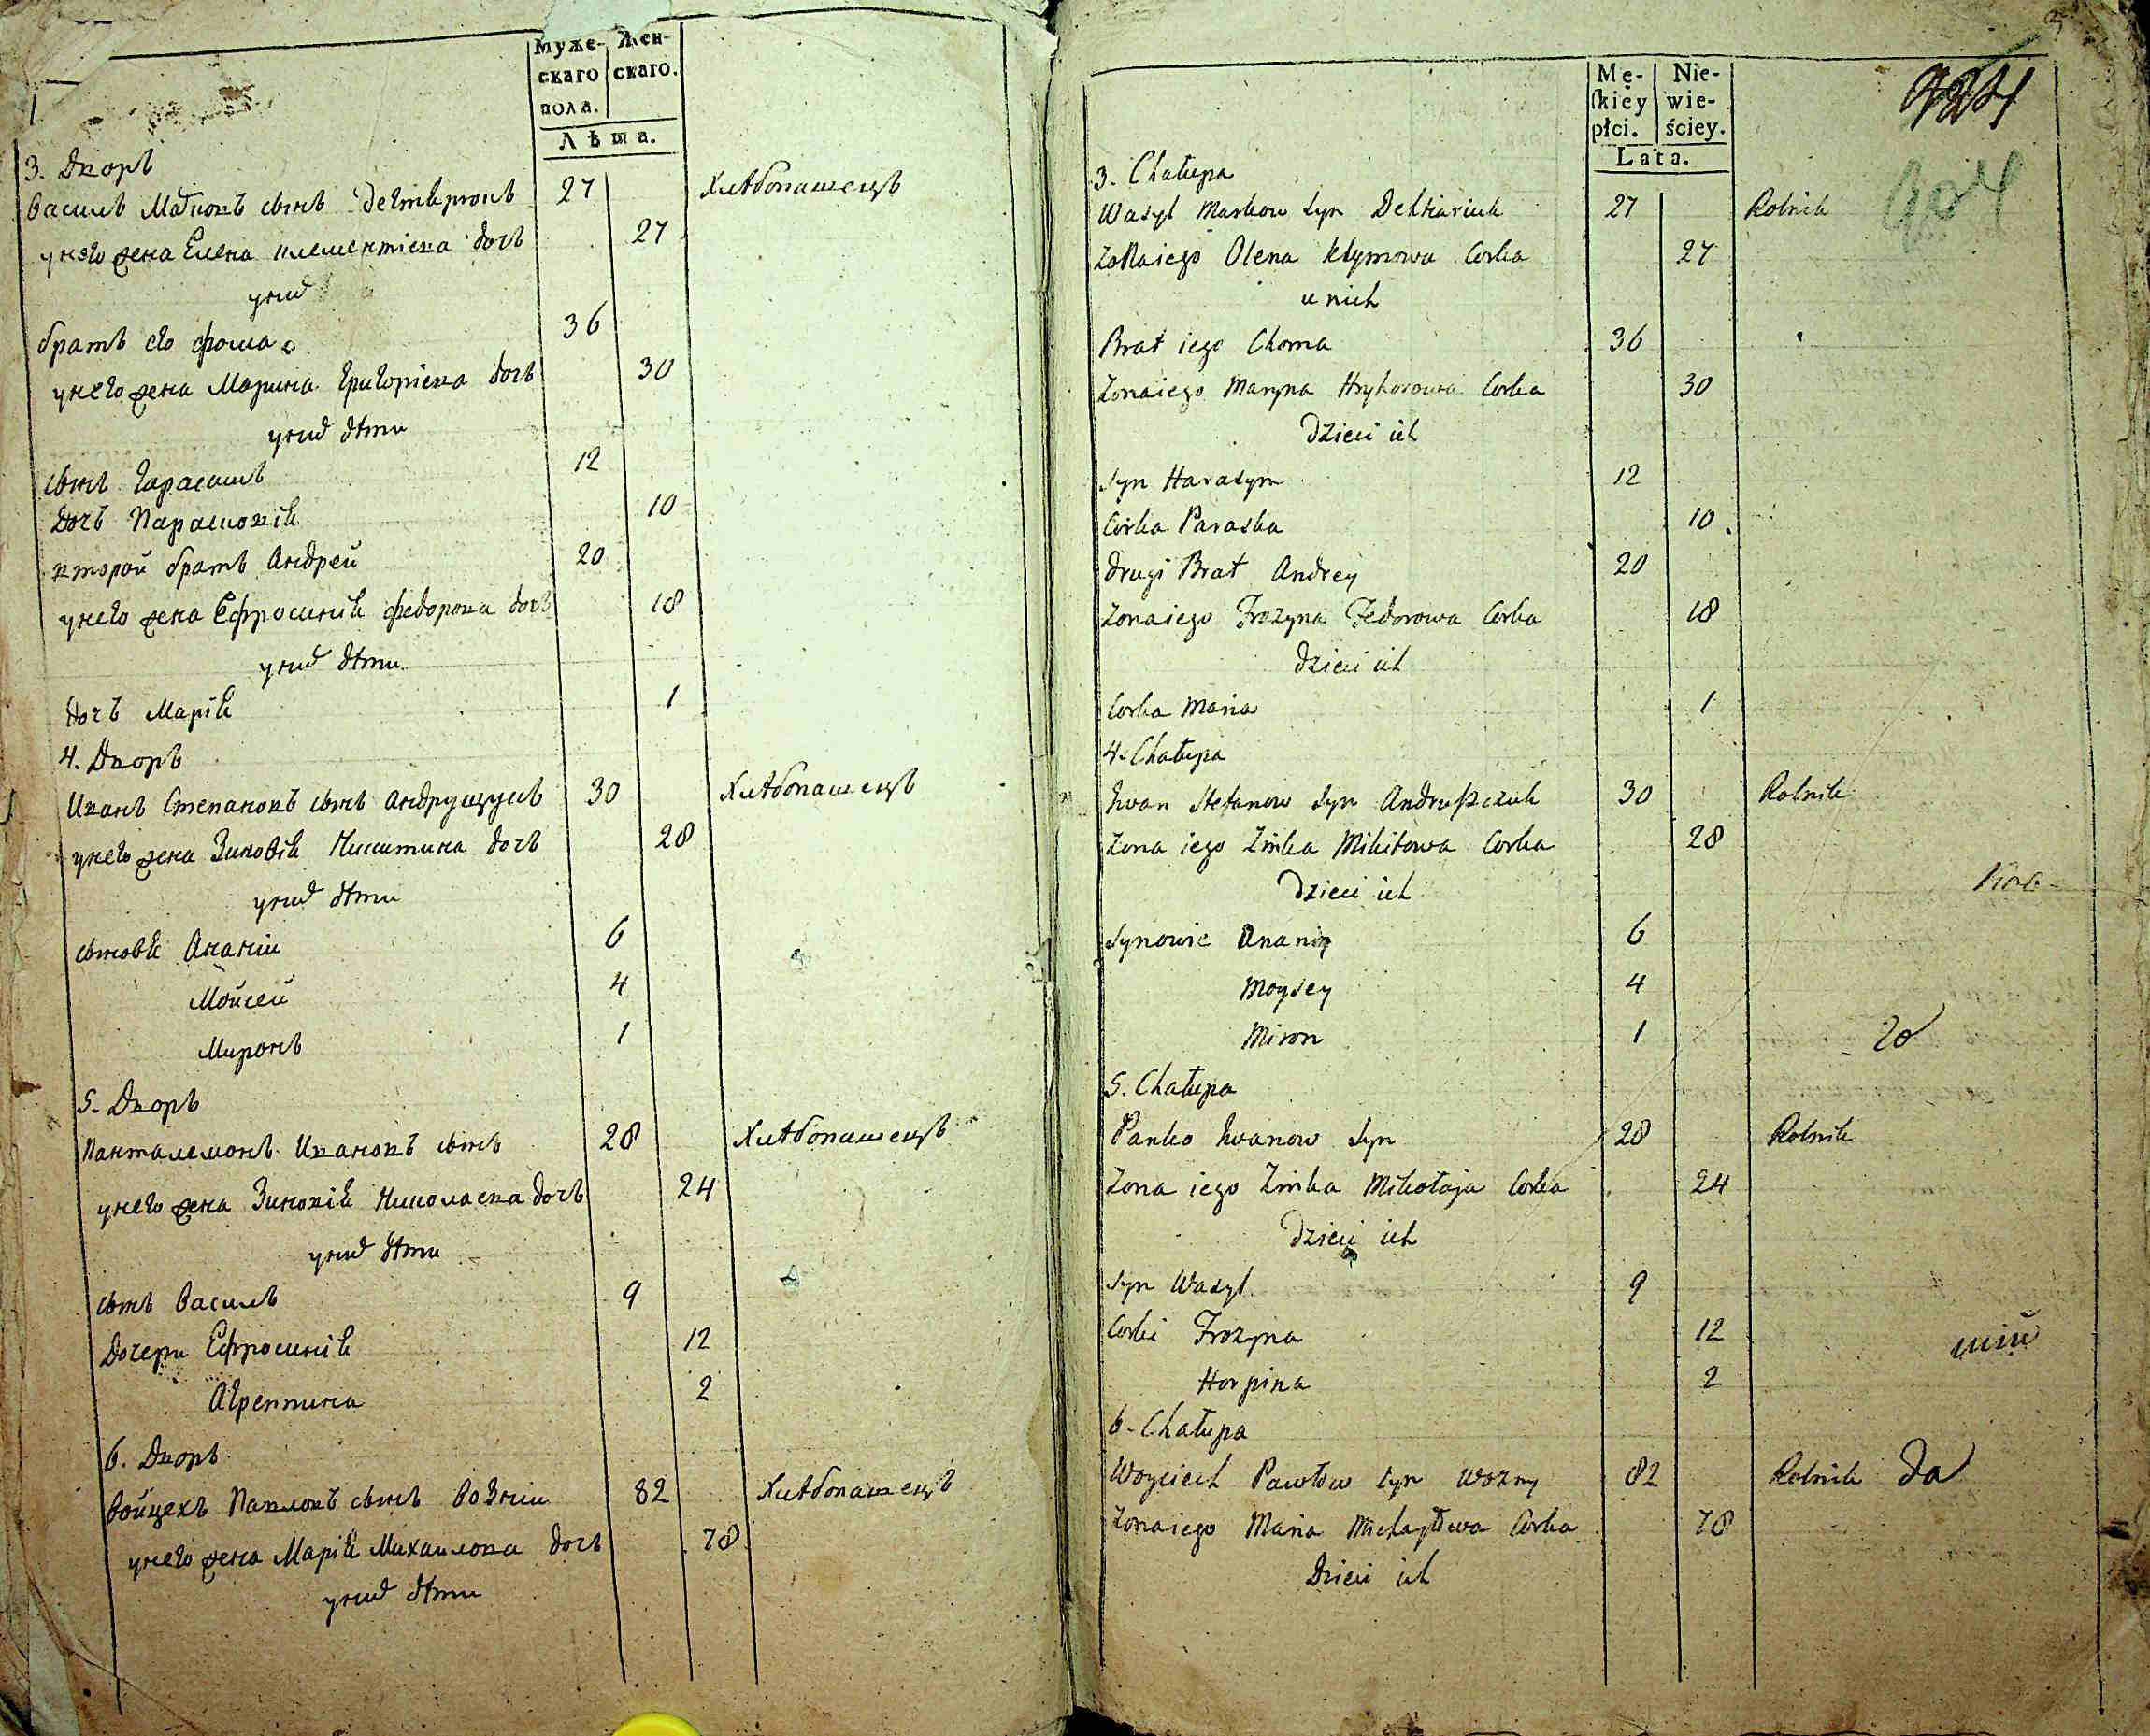 Муже-
скаго
пола.
Жен-
скаго.
Лѣта.
3. Дворъ
Василъ Марковъ сынъ 27 Хлѣбопашецъ
у него жена Елена Клементіева дочь 27
у них
братъ его Фома 36
у него жена Марина Григоріева дочь 30
у них дѣти
сынъ Гарасимъ 12
дочь Парасковія 10
второй братъ Андрей 20
у него жена Ефросинія Федорова дочь 18
у них дѣти
дочь Марія 1
4. Дворъ
Иванъ Степановъ сынъ Андрущукъ 30 Хлѣбопашецъ
у него жена Зиновія Никитина дочь 28
у них дѣти
сыновья Ананій 6
Мойсей 4
Миронъ 1
5. Дворъ
Панталемонъ Ивановъ сынъ 28 Хлѣбопашецъ
у него жена Зиновія Николаева дочь 24
у них дѣти
сынъ Василъ 9
дочери Ефросинія 12
Агреппина 2
6. Дворъ
Войцехъ Павловъ сынъ Возний 82 Хлѣбопашецъ
у него жена Марія Михайлова дочь 78
у них дѣти
Mę-
ſkiey
płci.
Nie-
wie-
ściey.
Lata.
904
3. Chałupa
Wasyl Markow syn 27 Rolnik
Zona iego Olena Klymowa Corka 27
u nich
Brat iego Choma 36
Zona iego Maryna Hryhorowa Corka 30
Dzieci ich
syn Harasym 12
Corka Paraska 10
drugi Brat Andrey 20
Zona iego Frozyna Fedorowa Corka 18
dzieci ich
Corka Maria 1
4. Chałupa
Iwan Stefanow syn Andruszczuk 30 Rolnik
Zona iego Zinka Mikitowa Corka 28
Dzieci ich
Synowie Ananiy 6
Moysey 4
Miron 1
5. Chałupa
Panko Iwanow syn 28 Rolnik
Zona iego Zinka Mikołaja Corka 24
Dzieci ich
syn Wasyl 9
Corki Frozyna 12
Horpina 2
6. Chałupa
Woyciech Pawłow syn Wozny 82 Rolnik да
Zona iego Maria Michayłowa Corka 78
Dzieci ich